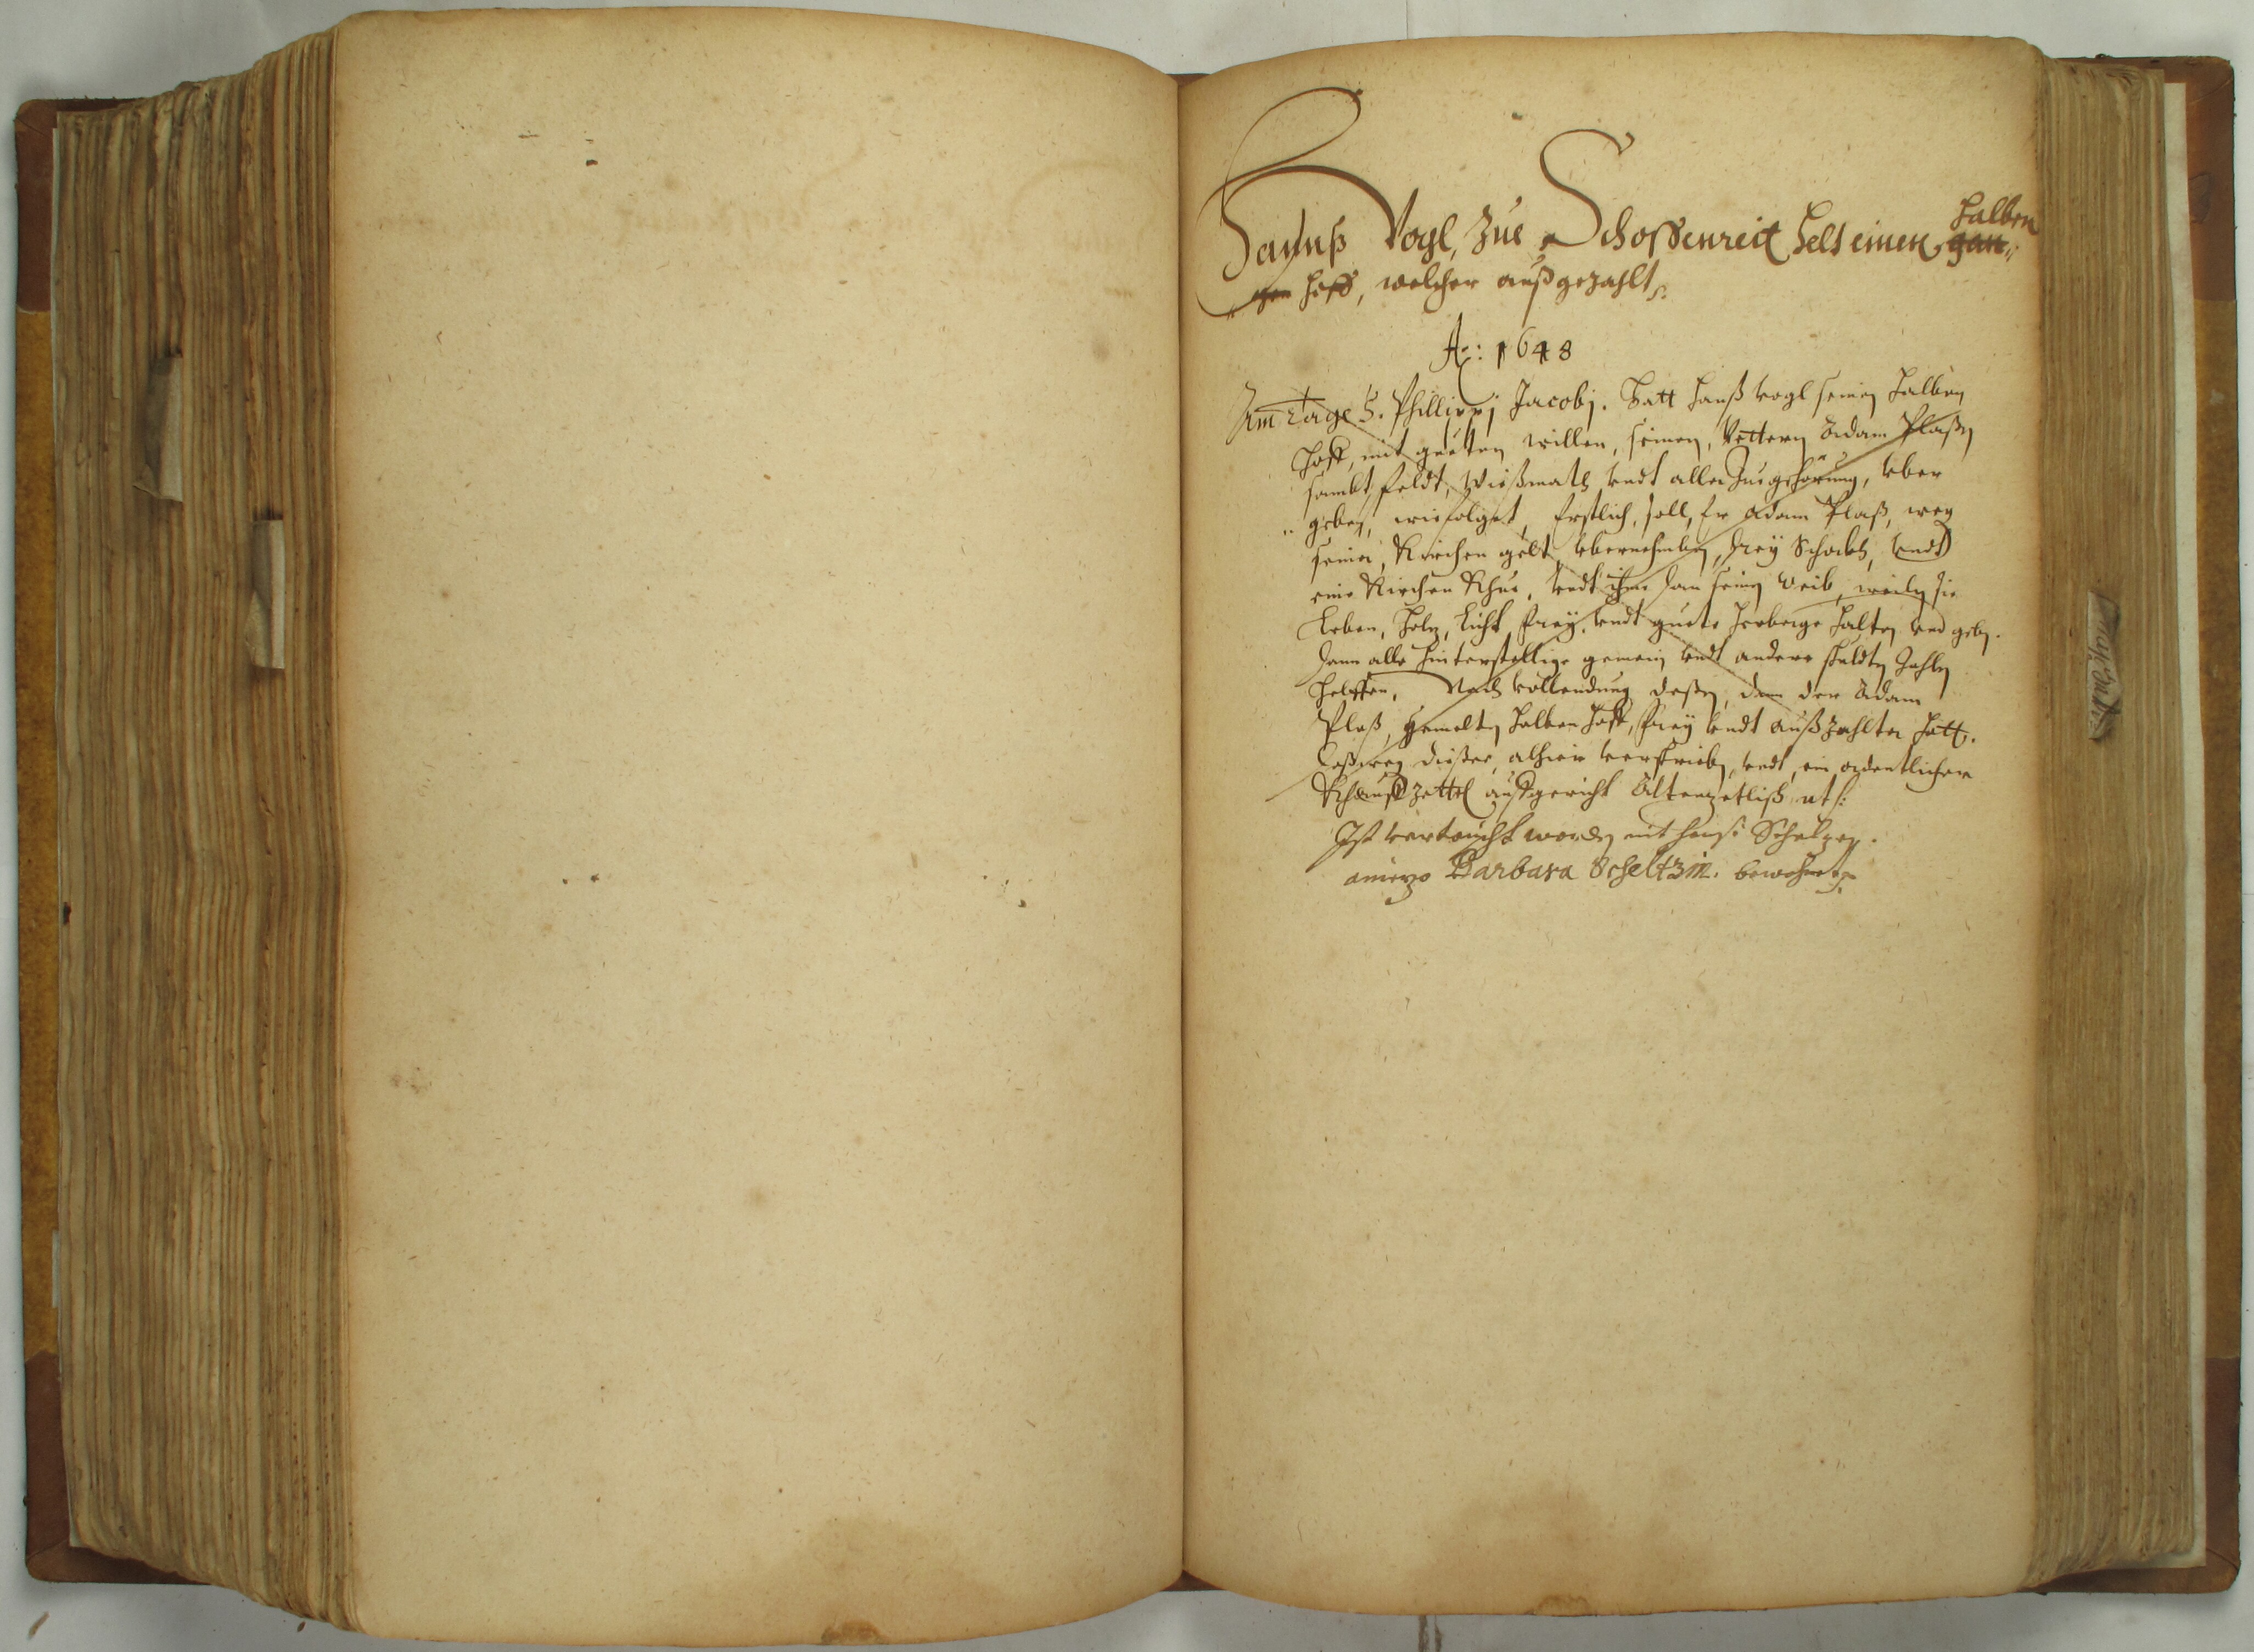 Hannß Vogl, zue Schossenreit helt einen halben gan
zen hoff, welcher außgezahlt
Ao: 1648
Am Tage S. Phillippj Jacobj. Hatt Hanß Vogl seinen halben
Hoff, mit gueten willen, seinen, Vettern Adam Plaßn
sambt, feldt, Wießmath vndt aller Zuegehörung, vber
geben, wie folget, Erstlich, soll, Er Adam Plaß, weg
seiner, Kirchen gelt vbernehmben, drey Schockh, vndt
eine Kirchen Khue, vndt ihme dan seinen Weib, weiln sie
Leben, Holz, Licht frey, vndt guete herberge halten vnd geben.
dann alle hinterstellige gemein vndt andere schuldten Zahln
helffen. Nach vollendung deßen, dem der Adam
Plaß, gemelten halben hoff, frey vndt außzahlter hatt.
dießes, alhier verschrieben, vndt, ein ordentlicher
Khauff zettel aufgericht uts:
Ist vertauscht worden mit Hanß Schelzen.
aniezo Barbara Scheltzin. bewohnet